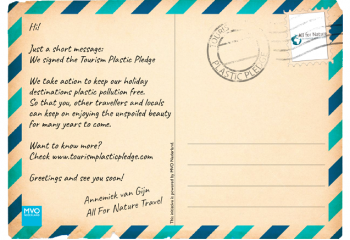 Hi!
Just a short message:
We signed the Tourism Plastic Pledge
We take action to keep our holiday
destinations plastic pollution free.
So that you, other travellers and locals
can keep on enjoying the unspoiled beauty
for many years to come.
Want to know more?
Check www.tourismplasticpledge.com
Greetings and see you soon!
Annemiek van Gijn
All For Nature Travel
MVO
This initiative is powered by MVO Nederland
TOURISM
PLASTIC PLEDGE
All for Nature